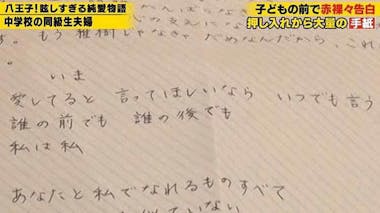 八王子!眩しすぎる純愛物語
中学校の同級生夫婦
子どもの前で赤裸々告白
押し入れから大量の手紙
す。もう 雅樹じゃなきゃ だめなんだから
いま
愛してると 言ってほしいなら いつでも言う
誰の前でも 誰の後でも
私は私
あなたと私でなれるものすべて